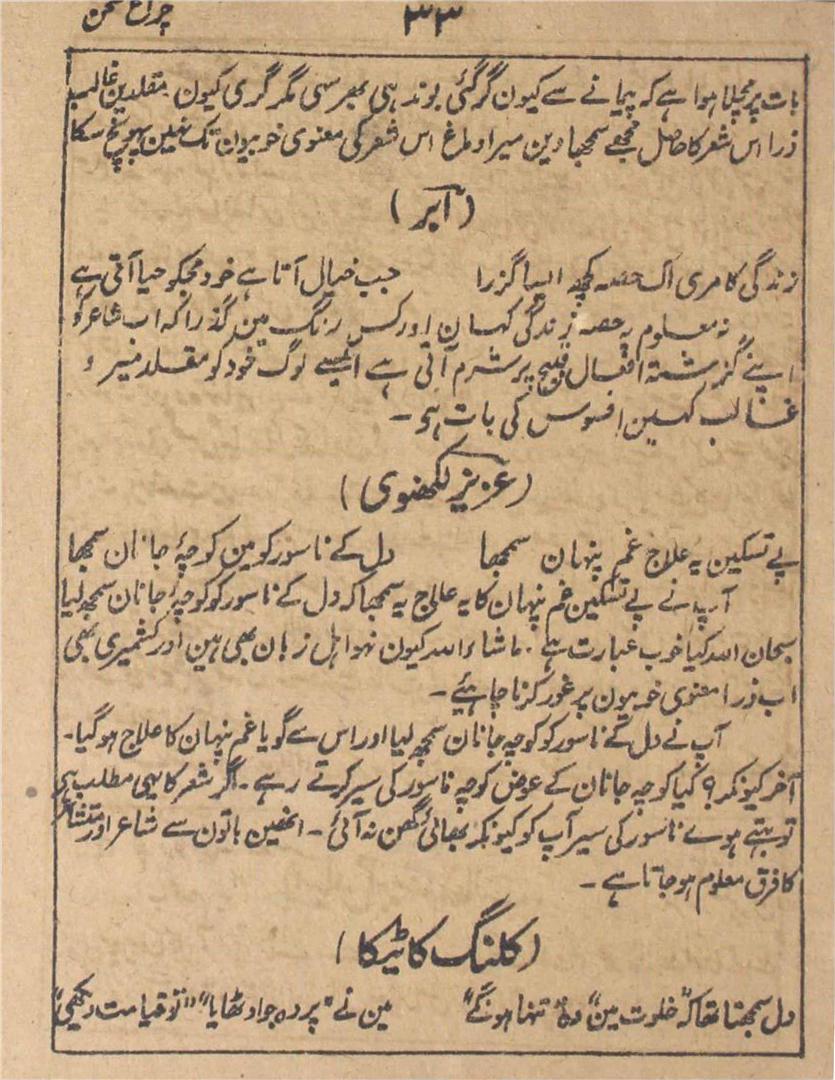 چراغ سخن
۳۳
بات پر مچلا ہوا ہے کہ پیمانے سے کیون گر گئی بوند ہی بھر سہی مگر گری کیون مقلدین غالب
ذرا اس شعر کا حاصل مجھے سمجھا دین میرا دماغ اس شعر کی معنوی خوبیون تک نہین پہونچ سکتا
(ابر)
زندگی کا مری اک حصہ کچھ ایسا گزرا جب خیال آتا ہے خود مجکو حیا آتی ہے
نہ معلوم یہ حصہ زندگی کہان اور کس رنگ مین گذرا کہ اب شاعر کو
اپنے گزشتہ افعال قبیح پر شرم آتی ہے ایسے لوگ خود کو مقلد میر و
غالب کہین افسوس کی بات ہی۔
(عزیز لکھنوی)
پے تسکین یہ علاج غم پنہان سمجھا دل کے ناسور کو مین کوچۂ جانان سمجھا
آپ نے پے تسکین غم پنہان کا یہ علاج یہ سمجھا کہ دل کے ناسور کو کوچۂ جانان سمجھ لیا
سبحان اللہ کیا خوب عبارت ہے۔ ماشاء اللہ کیون نہو اہل زبان بھی ہین اور کشمیری بھی
اب ذرا معنوی خوبیون پر غور کرنا چاہئیے۔
آپ نے دل کے ناسور کو کوچہ جانان سمجھ لیا اور اس سے گویا غم پنہان کا علاج ہو گیا۔
آخر کیونکر؟ کیا کوچہ جانان کے عوض کوچہ ناسور کی سیر کرتے رہے۔ اگر شعر کا یہی مطلب ہی
تو بہتے ہوے ناسور کی سیر آپ کو کیونکر بھائی گھن نہ آئی۔ انھین باتون سے شاعر اور متشاعر
کا فرق معلوم ہو جاتا ہے۔
(کلنگ کا ٹیکا)
دل سمجھتا تھا کہ "خلوت مین" وہ "تنہا ہونگے" مین نے "پردہ جو اوٹھایا" "تو قیامت دیکھی"